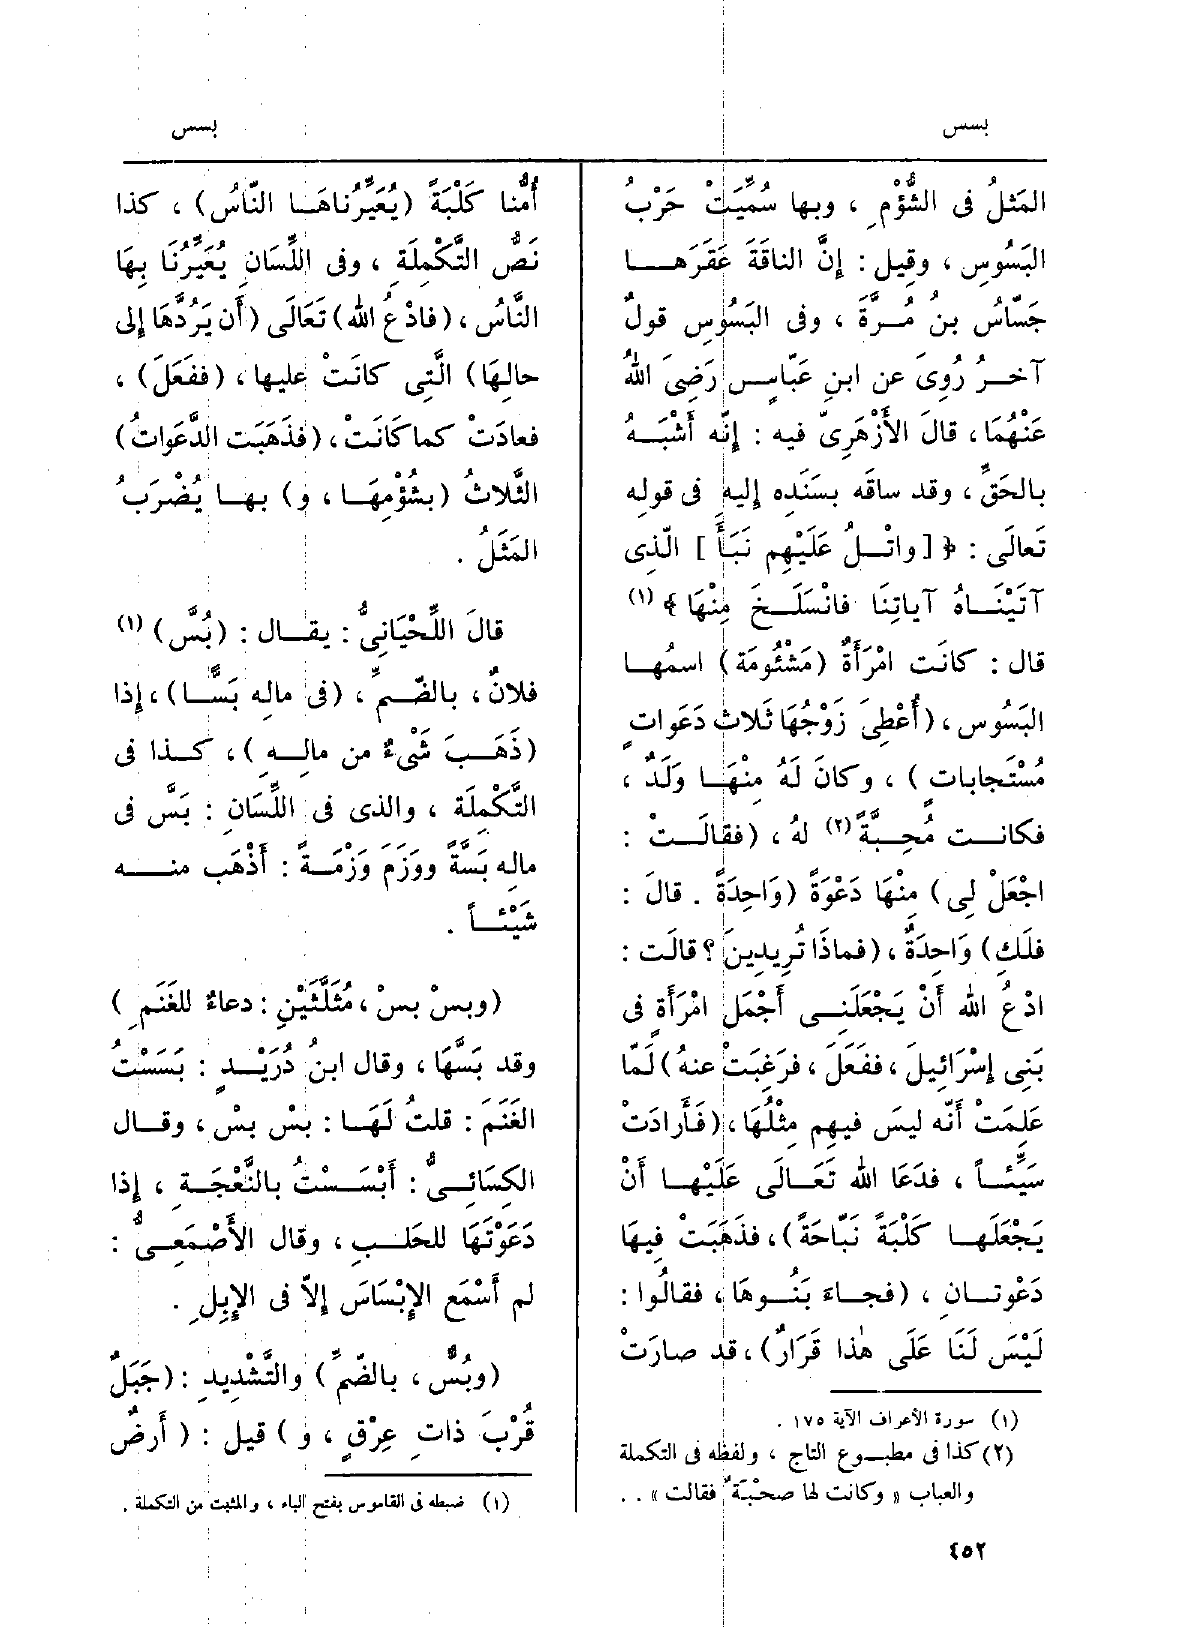 بسس
بسس
المَثلُ فى الشُّؤْمِ ، وبها سُمِّيَتْ حَرْبُ
البَسُوسِ ، وقيل : إنَّ الناقَةَ عَقَرَهـا
جَسّاسُ بنُ مُـرَّةَ ، وفى البَسُوسِ قولٌ
آخـرُ رُوِىَ عن ابنِ عَبّاسٍ رَضِىَ اللهُ
عَنْهُمَا، قالَ الأَزْهَرِىّ فيه : إنّه أَشْبَـهُ
بالحَقِّ ، وقد ساقَه بسَنَدِه إليه فى قوله
تَعالَى : ﴿ [ واتْـلُ عَلَيْهِم نَبَأَ ] الّذِى
آتَيْنَـاهُ آياتِنَا فانْسَلَـخَ مِنْهَا ﴾ (١)
قال : كانَت امْرَأَةٌ (مَشْئُومَة) اسمُهـا
البَسُوس ، (أُعْطِىَ زَوْجُهَا ثَلاثَ دَعَواتٍ
مُسْتَجابات ) ، وكانَ لَهُ مِنْهَـا وَلَدٌ ،
فكانـت مُحِبَّةً (٢) لهُ ، (فقالَـتْ :
اجْعَلْ لِى) مِنْهَا دَعْوَةً (وَاحِدَةً . قالَ :
فلَكِ) وَاحِدَةٌ ، (فماذَا تُرِيدِينَ ؟ قالَت :
ادْعُ اللهَ أَنْ يَجْعَلَنِـى أَجْمَلَ امْرَأَةٍ فى
بَنِى إِسْرَائِيلَ ، ففَعَلَ ، فرَغِبَتْ عنهُ) لَمّا
عَلِمَتْ أَنّه ليسَ فيهِم مِثْلُهَا ، (فَأَرادَتْ
سَيِّئـاً ، فدَعَا اللهَ تَعَـالَى عَلَيْهـا أَنْ
يَجْعَلَهـا كَلْبَةً نَبّاحَةً) ، فذَهَبَتْ فِيهَا
دَعْوتـانِ ، (فجـاءَ بَنُـوهَا ، فقالُوا :
لَيْسَ لَنَا عَلَى هٰذا قَرَارٌ) ، قد صارَتْ
(١) سورة الأعراف الآية ١٧٥ .
(٢) كذا فى مطبـوع التاج ، ولفظه فى التكملة
والعباب « وكانت لها صحْبَةٌ فقالت » . .
أُمُّنا كَلْبَةً (يُعَيِّرُناهَـا النّاسُ) ، كذا
نَصُّ التَّكْمِلَةِ ، وفى اللِّسَانِ يُعَيِّرُنَا بِهَا
النَّاسُ ، (فادْعُ الله) تَعَالَى (أَن يَرُدَّهَا إِلى
حالِهَا) الَّتِى كانَتْ عليها ، (ففَعَلَ) ،
فعادَتْ كما كانَتْ ، (فذَهَبَت الدَّعَواتُ)
الثَّلاثُ (بشُؤْمِهَـا ، و) بهـا يُضْرَبُ
المَثَلُ .
قالَ اللِّحْيَانِىُّ : يقـال : (بُسَّ) (١)
فلانٌ ، بالضّـمِّ ، (فى مالِه بَسًّـا) ، إِذا
(ذَهَـبَ شَىْءٌ من مالِـهِ ) ، كـذا فى
التَّكْمِلَة ، والذى فى اللِّسَانِ : بَسَّ فى
مالِه بَسَّةً ووَزَمَ وَزْمَـةً : أَذْهَب منـه
شَيْئـاً .
(وبسْ بسْ ، مُثَلَّثَيْنِ : دعاءٌ للغَنَمِ )
وقد بَسَّهَا ، وقال ابنُ دُرَيْـدٍ : بَسَسْتُ
الغَنَمَ : قلتُ لَهَـا : بَسْ بَسْ ، وقـال
الكِسَائِـىُّ : أَبْسَسْـتُ بالنَّعْجَـةِ ، إِذا
دَعَوْتَهَا للحَلـبِ ، وقال الأَصْمَعِـىُّ :
لم أَسْمَعِ الإِبْسَاسَ إلاّ فى الإِبِلِ .
(وبُسٌّ ، بالضّمِّ ) والتَّشْدِيدِ : (جَبَلٌ
قُرْبَ ذاتِ عِرْقٍ ، و ) قيل : ( أَرضٌ
(١) ضبطه فى القاموس بفتح الباء ، والمثبت من التكملة .
٤٥٢